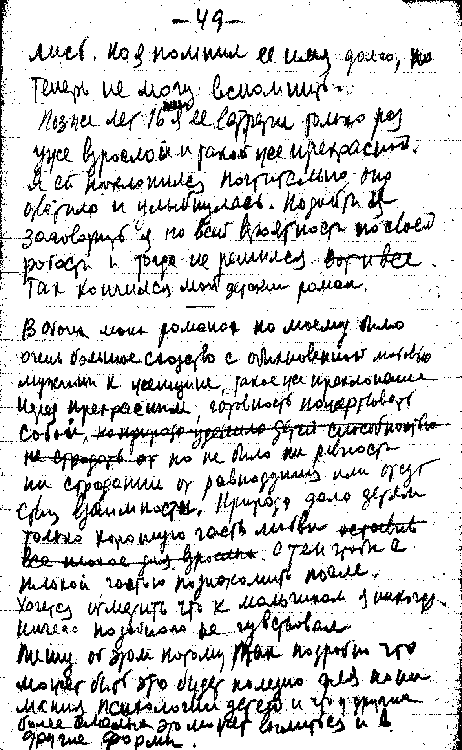 — 49 —
лись. Но я помнил ее имя долго, но
теперь не могу вспомнить.
Позже лет 16 я ее встретил только раз
уже взрослой и такой же прекрасной.
Я ей поклонился почтительно она
ответила и улыбнулась. Подойти и
заговорить я по всей вероятности по своей
робости и тогда не решился вот и все.
Так кончился мой детский роман.
В обоих моих романах по моему было
очень большое сходство с обыкновенной любовью
мужчины к женщине, такое же преклонение
перед прекрасным, готовность пожертвовать
собой, но природа
не страдать от но не было ни ревности
ни страданий от равнодушия или отсут
ствия взаимности. Природа дала детям
только хорошую часть любви оставив
все плохое для взрослых. С тем чтобы с
плохой частью познакомить после.
Хочется отметить что к мальчикам я никогда
ничего подобного не чувствовал
Пишу об этом потому так подробно что
может быть это будет полезно для пони
мания психологии детей и что у других
более это может вылиться и в
другие формы.